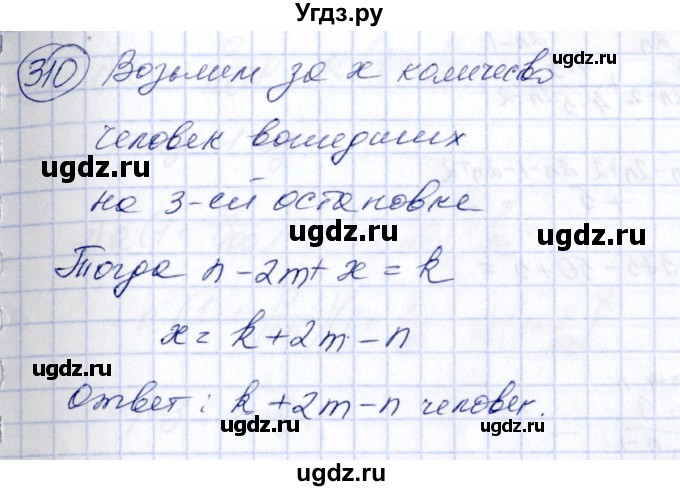 Угдз.ру
310 Возьмем за x количесво
ugdz.ru
человек вошедших
ugdz.ru ugdz.ru
на 3-ей остановке
ugdz.ru
Тогда n-2m+x=k
ugdz.ru
x=k+2m-n
ugdz.ru ugdz.ru
Ответ: k+2m-n человек.
ugdz.ru
ugdz.ru